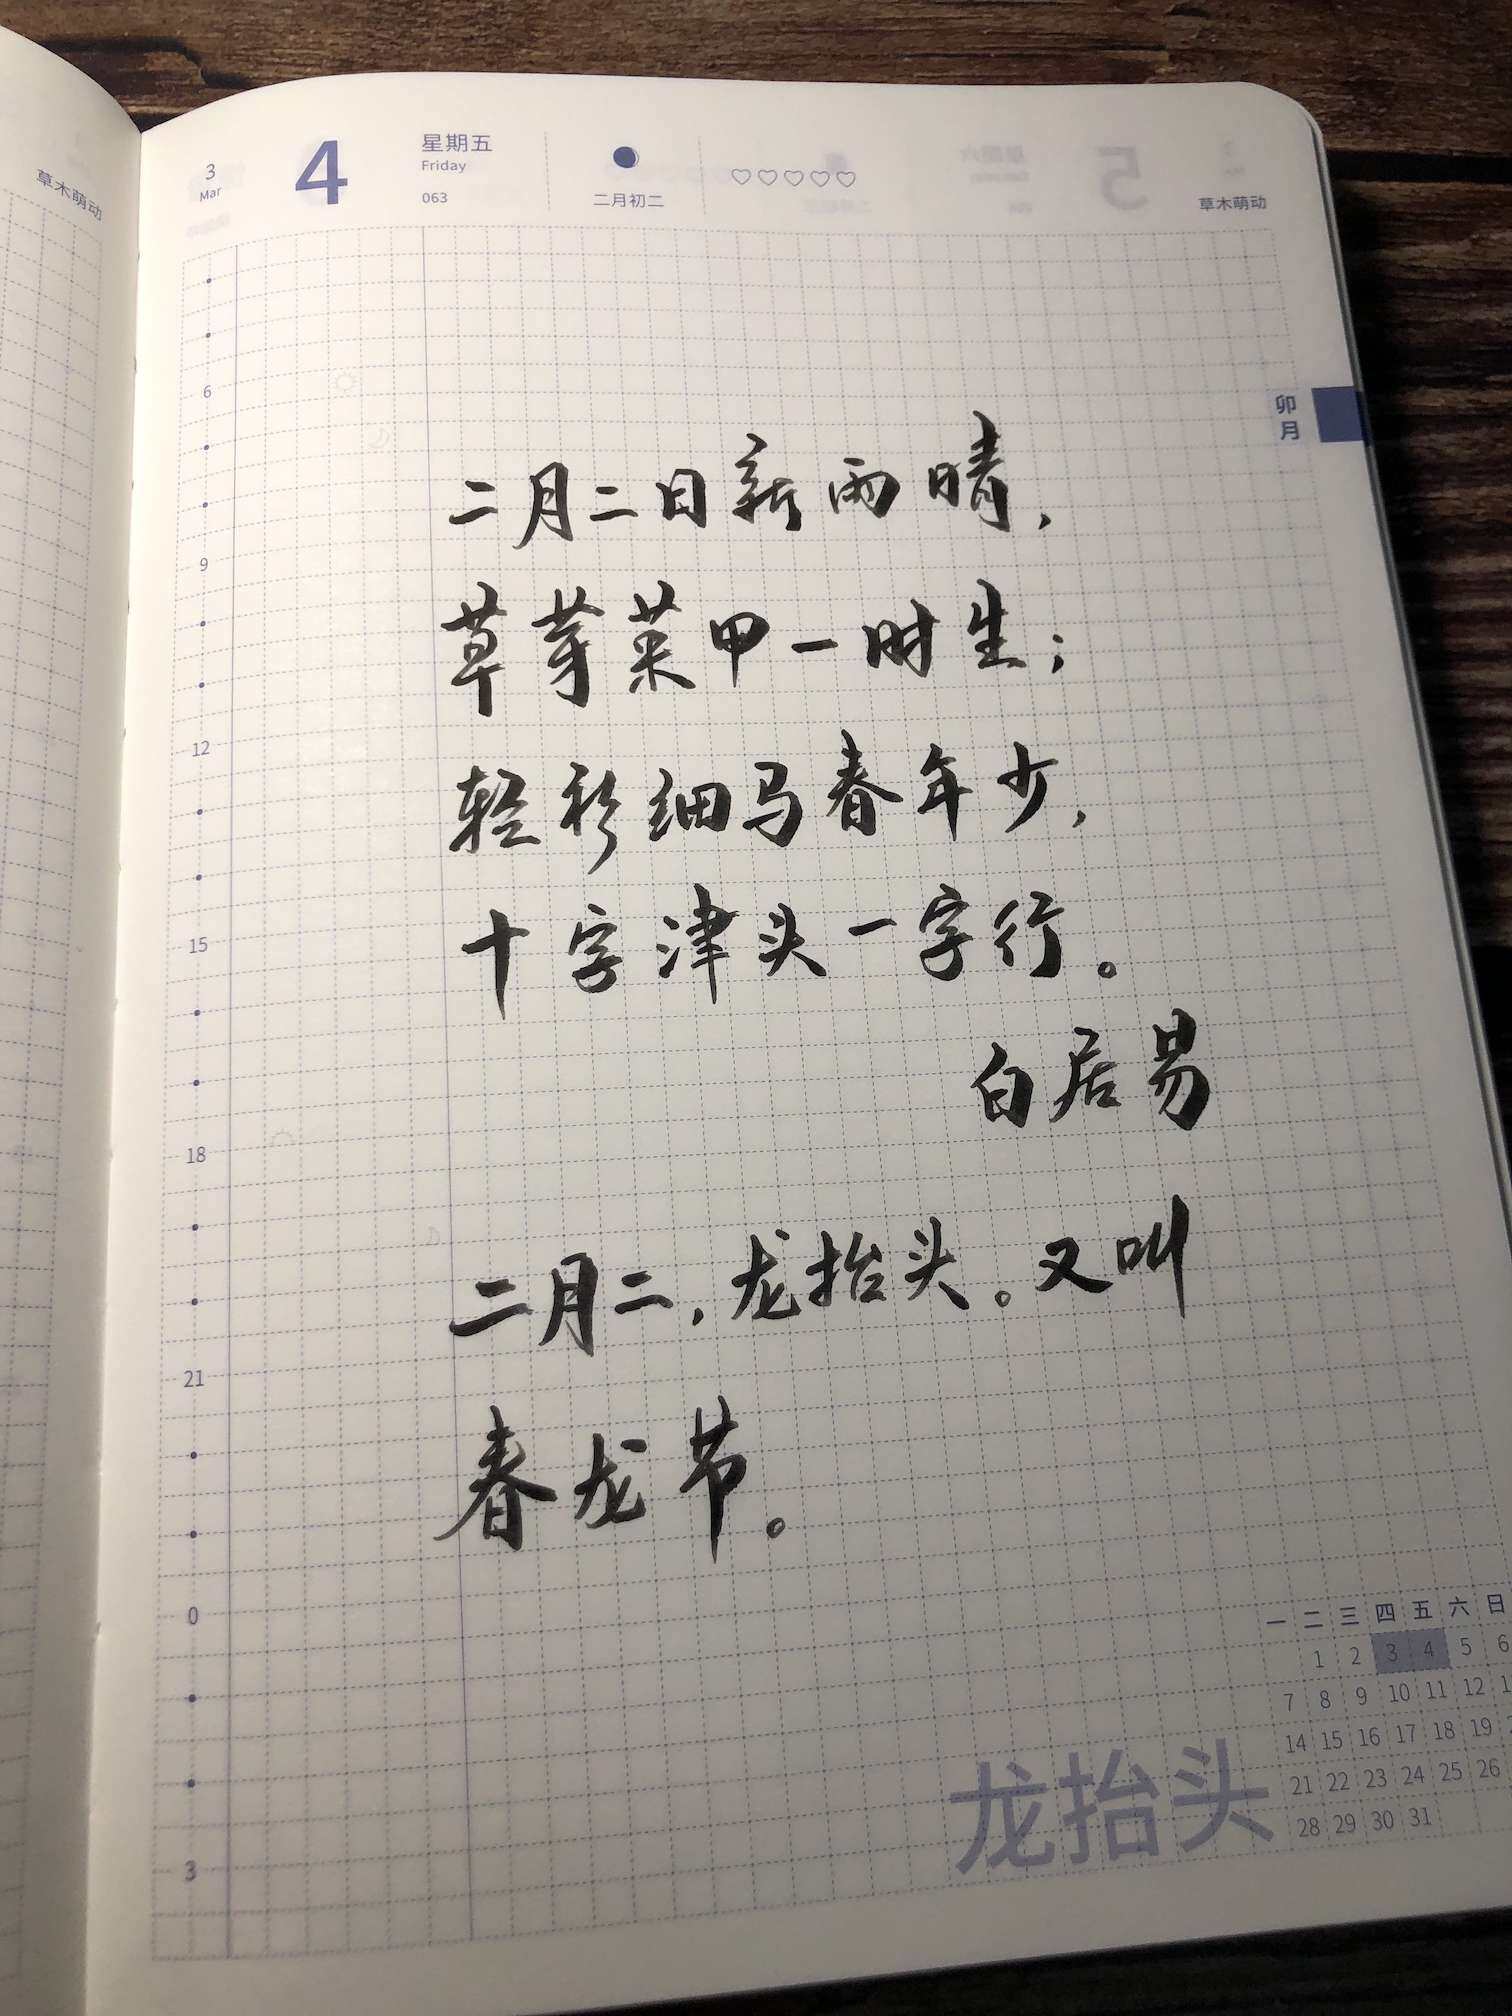 草木萌动
3
Mar
4
星期五
Friday
063
二月初二
草木萌动
卯月
6
9
12
15
18
21
0
3
二月二日新雨晴,
草芽菜甲一时生;
轻衫细马春年少,
十字津头一字行。
白居易
二月二,龙抬头。又叫
春龙节。
一 二 三 四 五 六 日
1 2 3 4 5 6
7 8 9 10 11 12
14 15 16 17 18 19
21 22 23 24 25 26
28 29 30 31
龙抬头